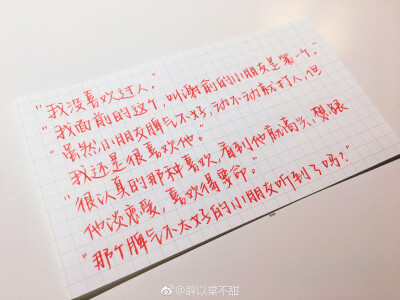 "我没喜欢过人."
"我面前的这个,叫谢俞的小朋友是第一个."
"虽然小朋友脾气不好,动不动就打人,但
我还是很喜欢他."
"很认真的那种喜欢,看到他就高兴,想跟
他谈恋爱,喜欢得要命."
"那个脾气不太好的小朋友听到了吗?"
@辞以棠不甜